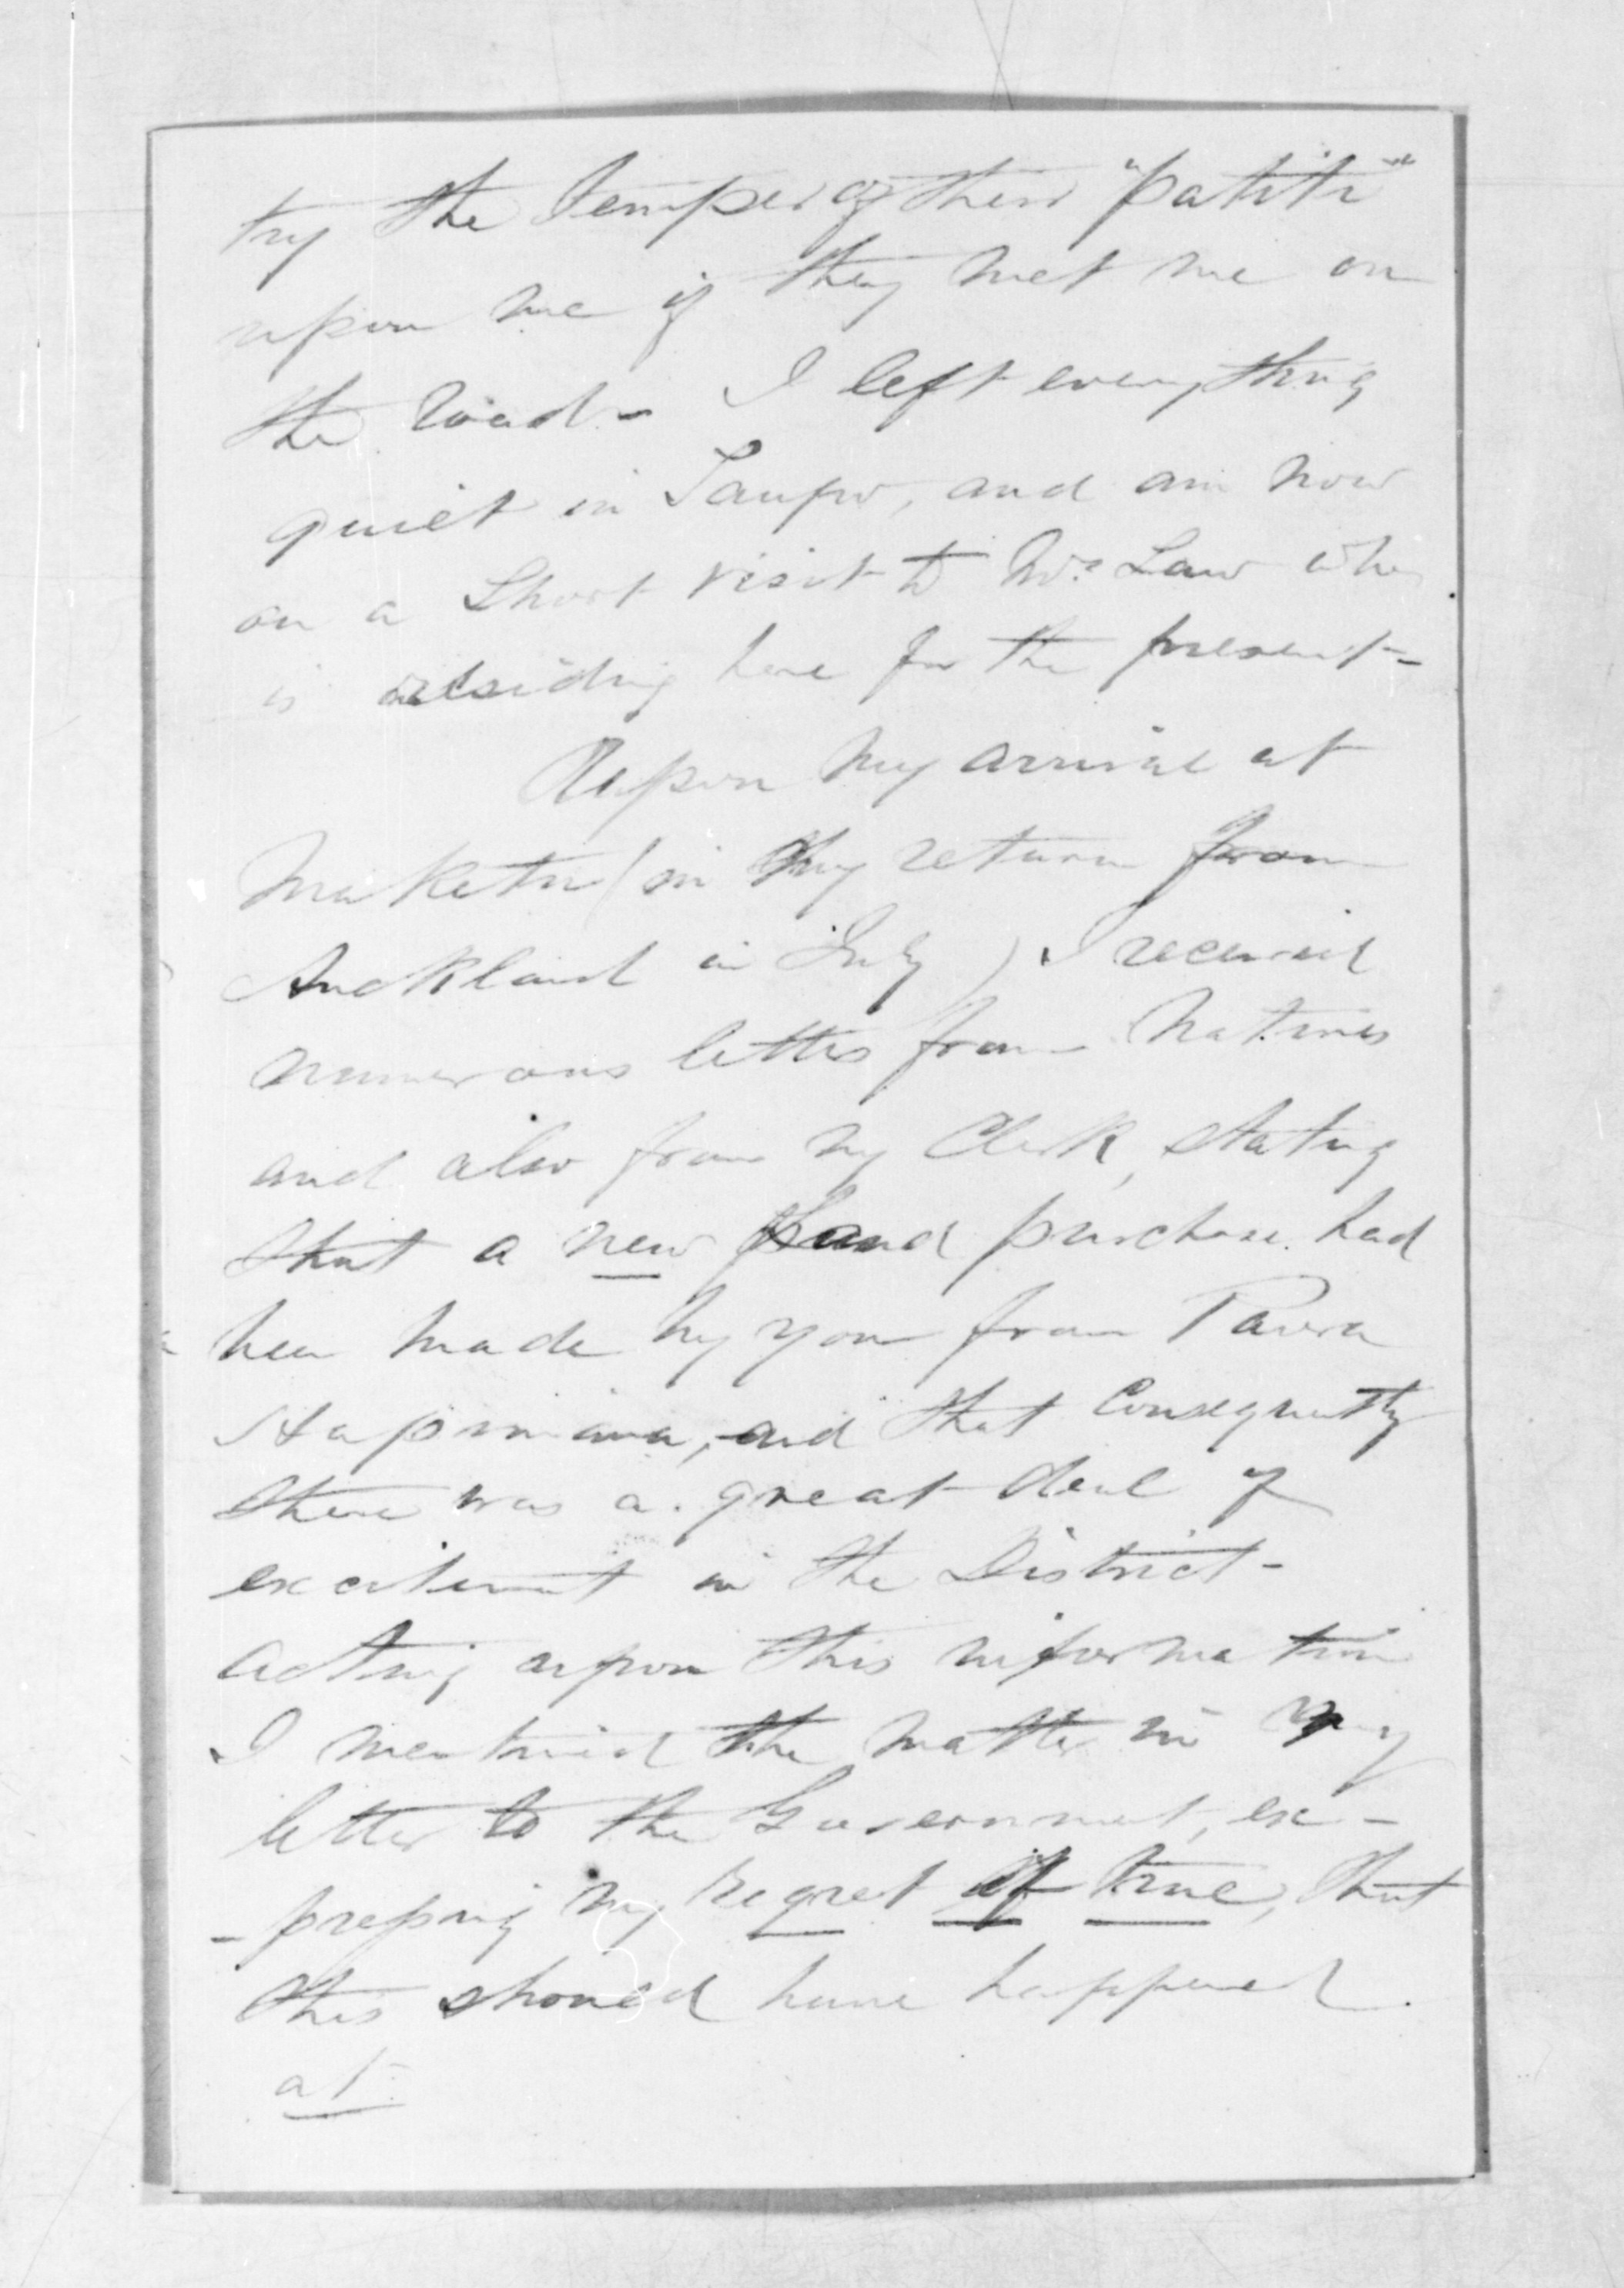 try the temper of their "patiti"
upon me if they met me on
the road - I left everything
quiet in Taupo, and am now
on a short visit to Mr Law who
is residing here for the present -
Upon my arrival at
Maketu (in my return from
Auckland in July) I received
numerous letters from Natives
and also from my Clerk, stating
that a new land purchase had
been made by you from
Hapimana, and that consequently
there was a great deal of
excitement in the District -
acting upon this information
I mentioned the matter in my
letter to the Government, ex-
-pressing my regret if true, that
this should have happened
at